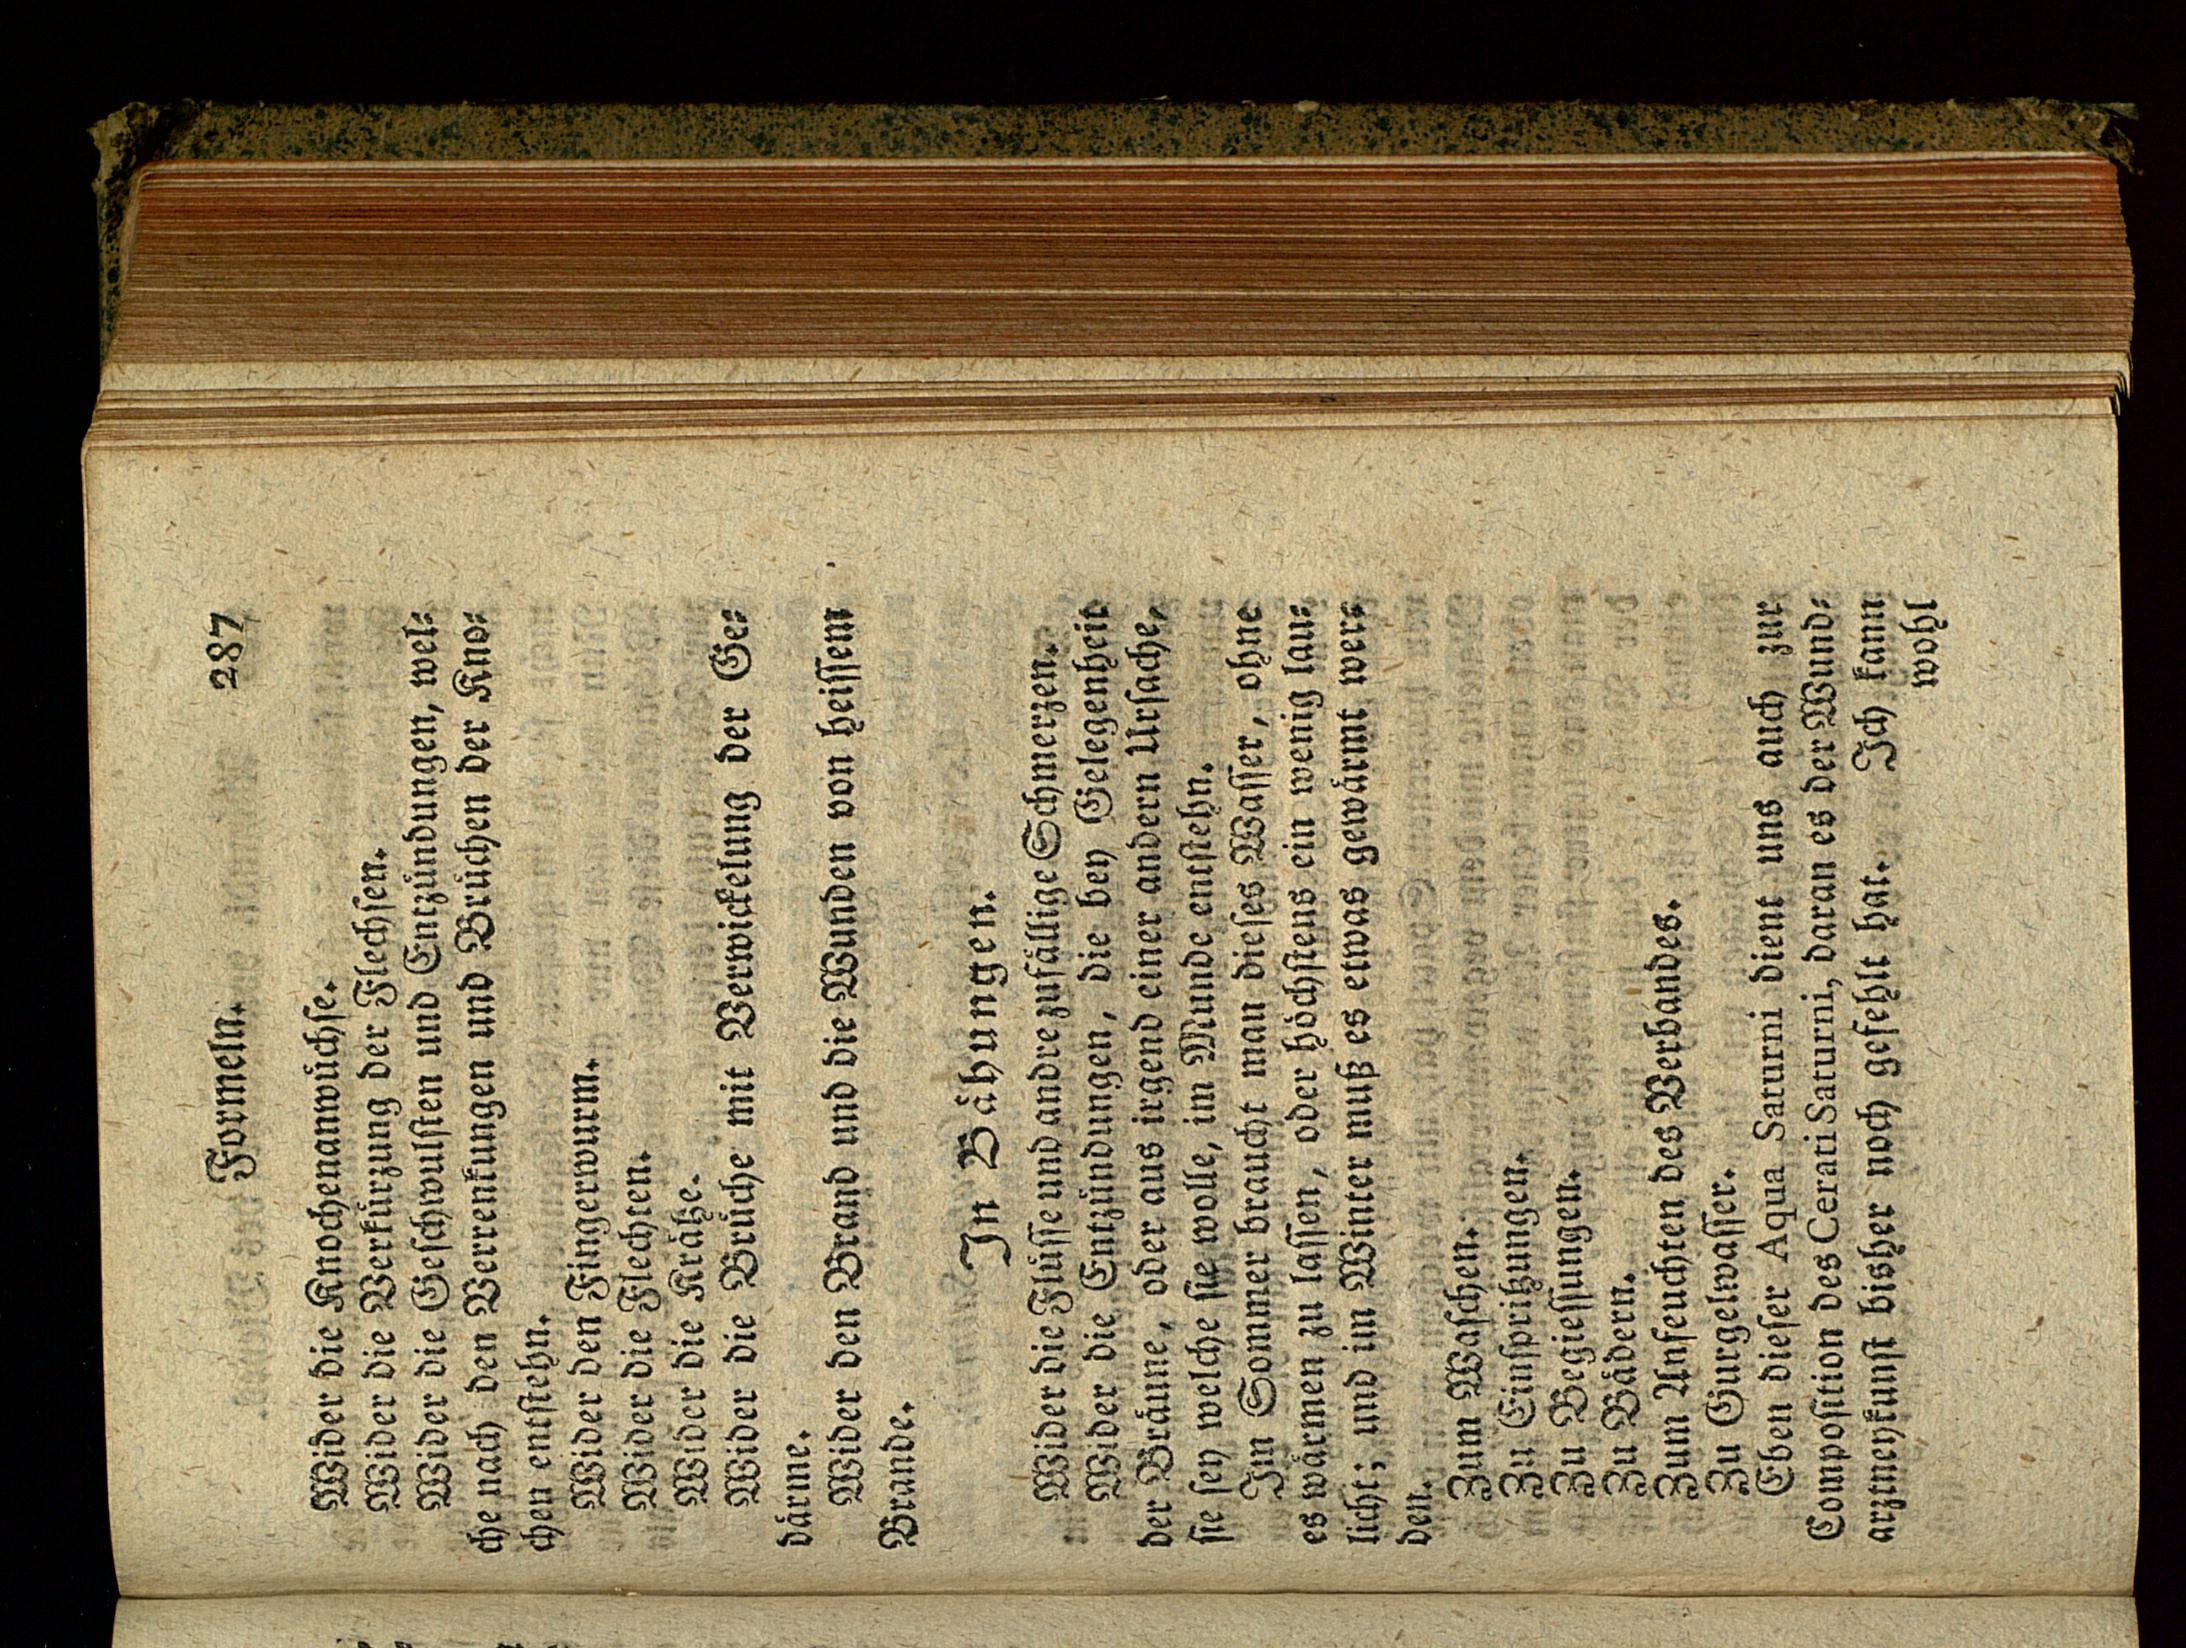 Formeln. 287
Wider die Knochenanwüchse.
Wider die Verkürzung der Flechsen.
Wider die Geschwulsten und Entzündungen, wel-
che nach den Verrenkungen und Brüchen der Kno-
chen entstehn.
Wider den Fingerwurm.
Wider die Flechten.
Wider die Krätze.
Wider die Brüche mit Verwickelung der Ge-
därme.
Wider den Brand und die Wunden von heissem
Brande.
In Bähungen.
Wider die Flüsse und andre zufällige Schmerzen.
Wider die Entzündungen, die bey Gelegenheit
der Bräune, oder aus irgend einer andern Ursache,
sie sey welche sie wolle, im Munde entstehn.
Im Sommer braucht man dieses Wasser, ohne
es wärmen zu lassen, oder höchstens ein wenig lau-
licht; und im Winter muß es etwas gewärmt wer-
den.
Zum Waschen.
Zu Einspritzungen.
Zu Begiessungen.
Zu Bädern.
Zum Anfeuchten des Verbandes.
Zu Gurgelwasser.
Eben dieser Aqua Saturni dient uns auch zur
Composition des Cerati Saturni, daran es der Wund-
arztneykunst bisher noch gefehlt hat. Ich kann
wohl